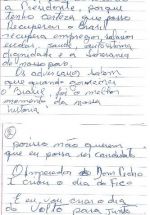 a Presidente, porque
tenho certeza que posso
Recuperar o Brasil
recupera empregos, salários
escolas, saúde,
dignidade e a soberania
de nosso país.
Os adversários sabem
que quando governei
o Brasil, foi o melhor
momento da nossa
história.
não querem
que eu possa ser candidato
O Imperador Dom Pedro
I criou o dia do Fico
E eu vou criar o dia
do Volto para junto